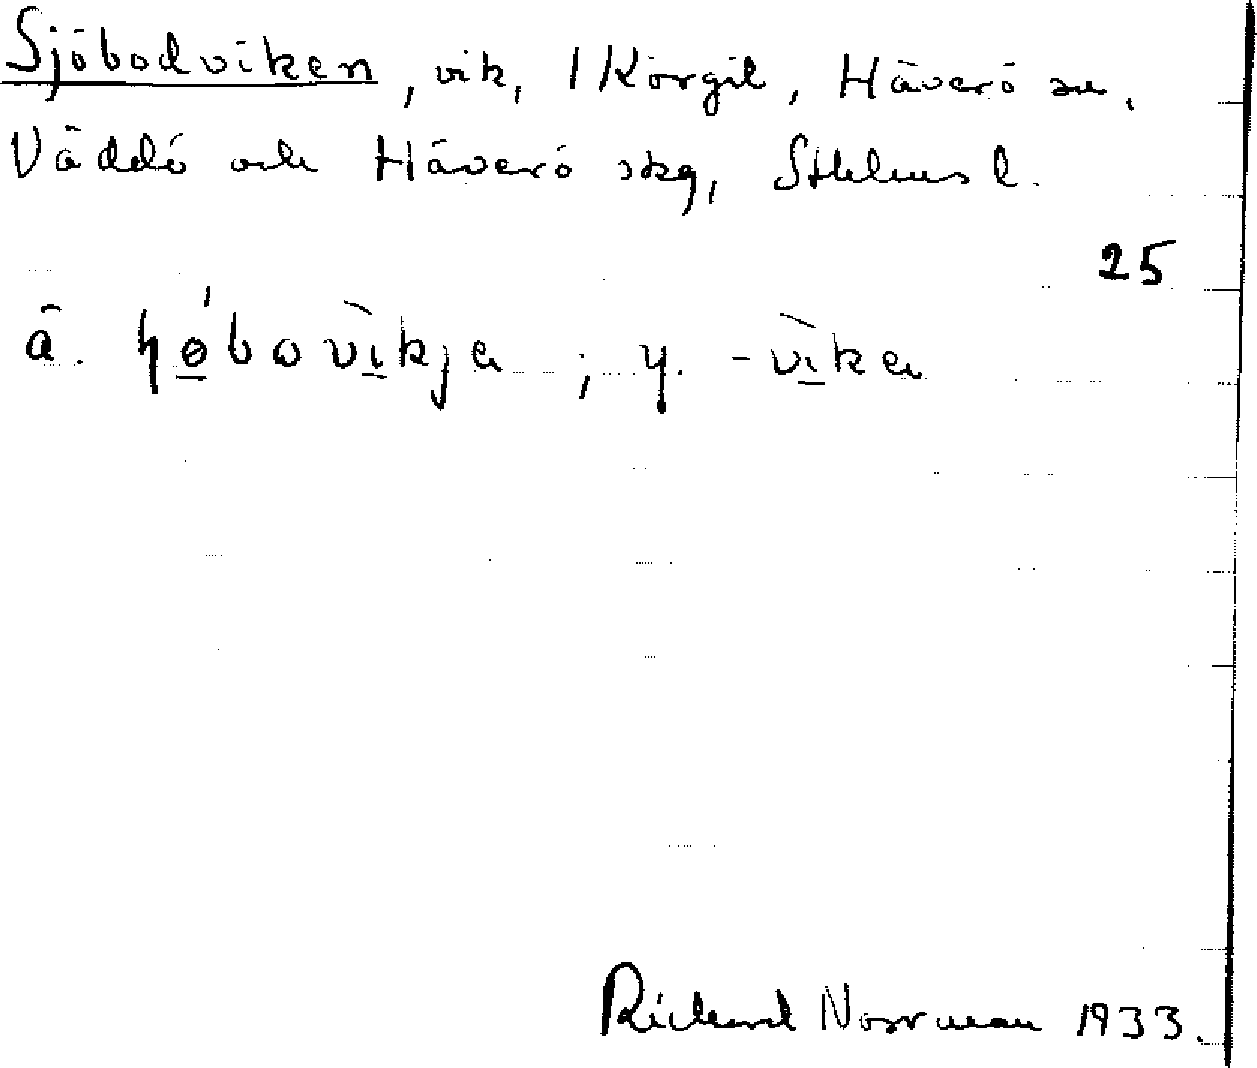 Sjöbodviken, vik, 1 Körgil, Häverö sn,
Väddö och Häverö skg, Sthlms l.
25
ä. ɧøbovìkja ; y. -vìka
Richard Norrman 1933.